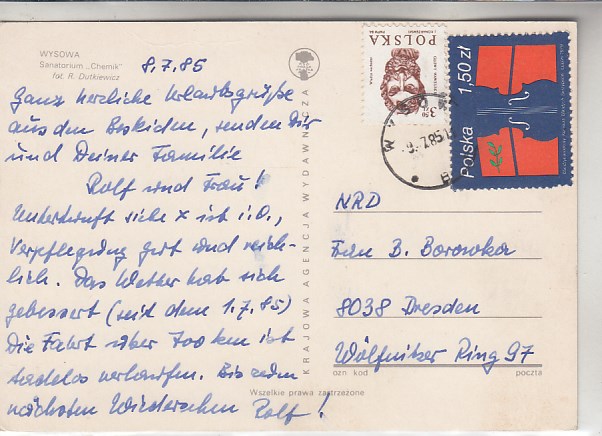 WYSOWA
Sanatorium „Chemik"
fot. R. Dutkiewicz
8.7.85
Ganz herzliche Urlaubsgrüße
aus den Beskiden, senden Dir
und Deiner Familie
Rolf und Frau!
Unterkunft siehe x ist i.O.,
Verpflegung gut und reich-
lich. Das Wetter hat sich
gebessert (seit dem 1.7.85)
Die Fahrt über 700 km ist
tadellos verlaufen. Bis zum
nächsten Wiedersehen Rolf!
KRAJOWA AGENCJA WYDAWNICZA
POLSKA
3 50 zł
Polska 1,50 zł
WYSOWA
NRD
Frau B. Borowka
8038 Dresden
Wölfnitzer Ring 97
ozn kod
poczta
Wszelkie prawa zastrzeżone